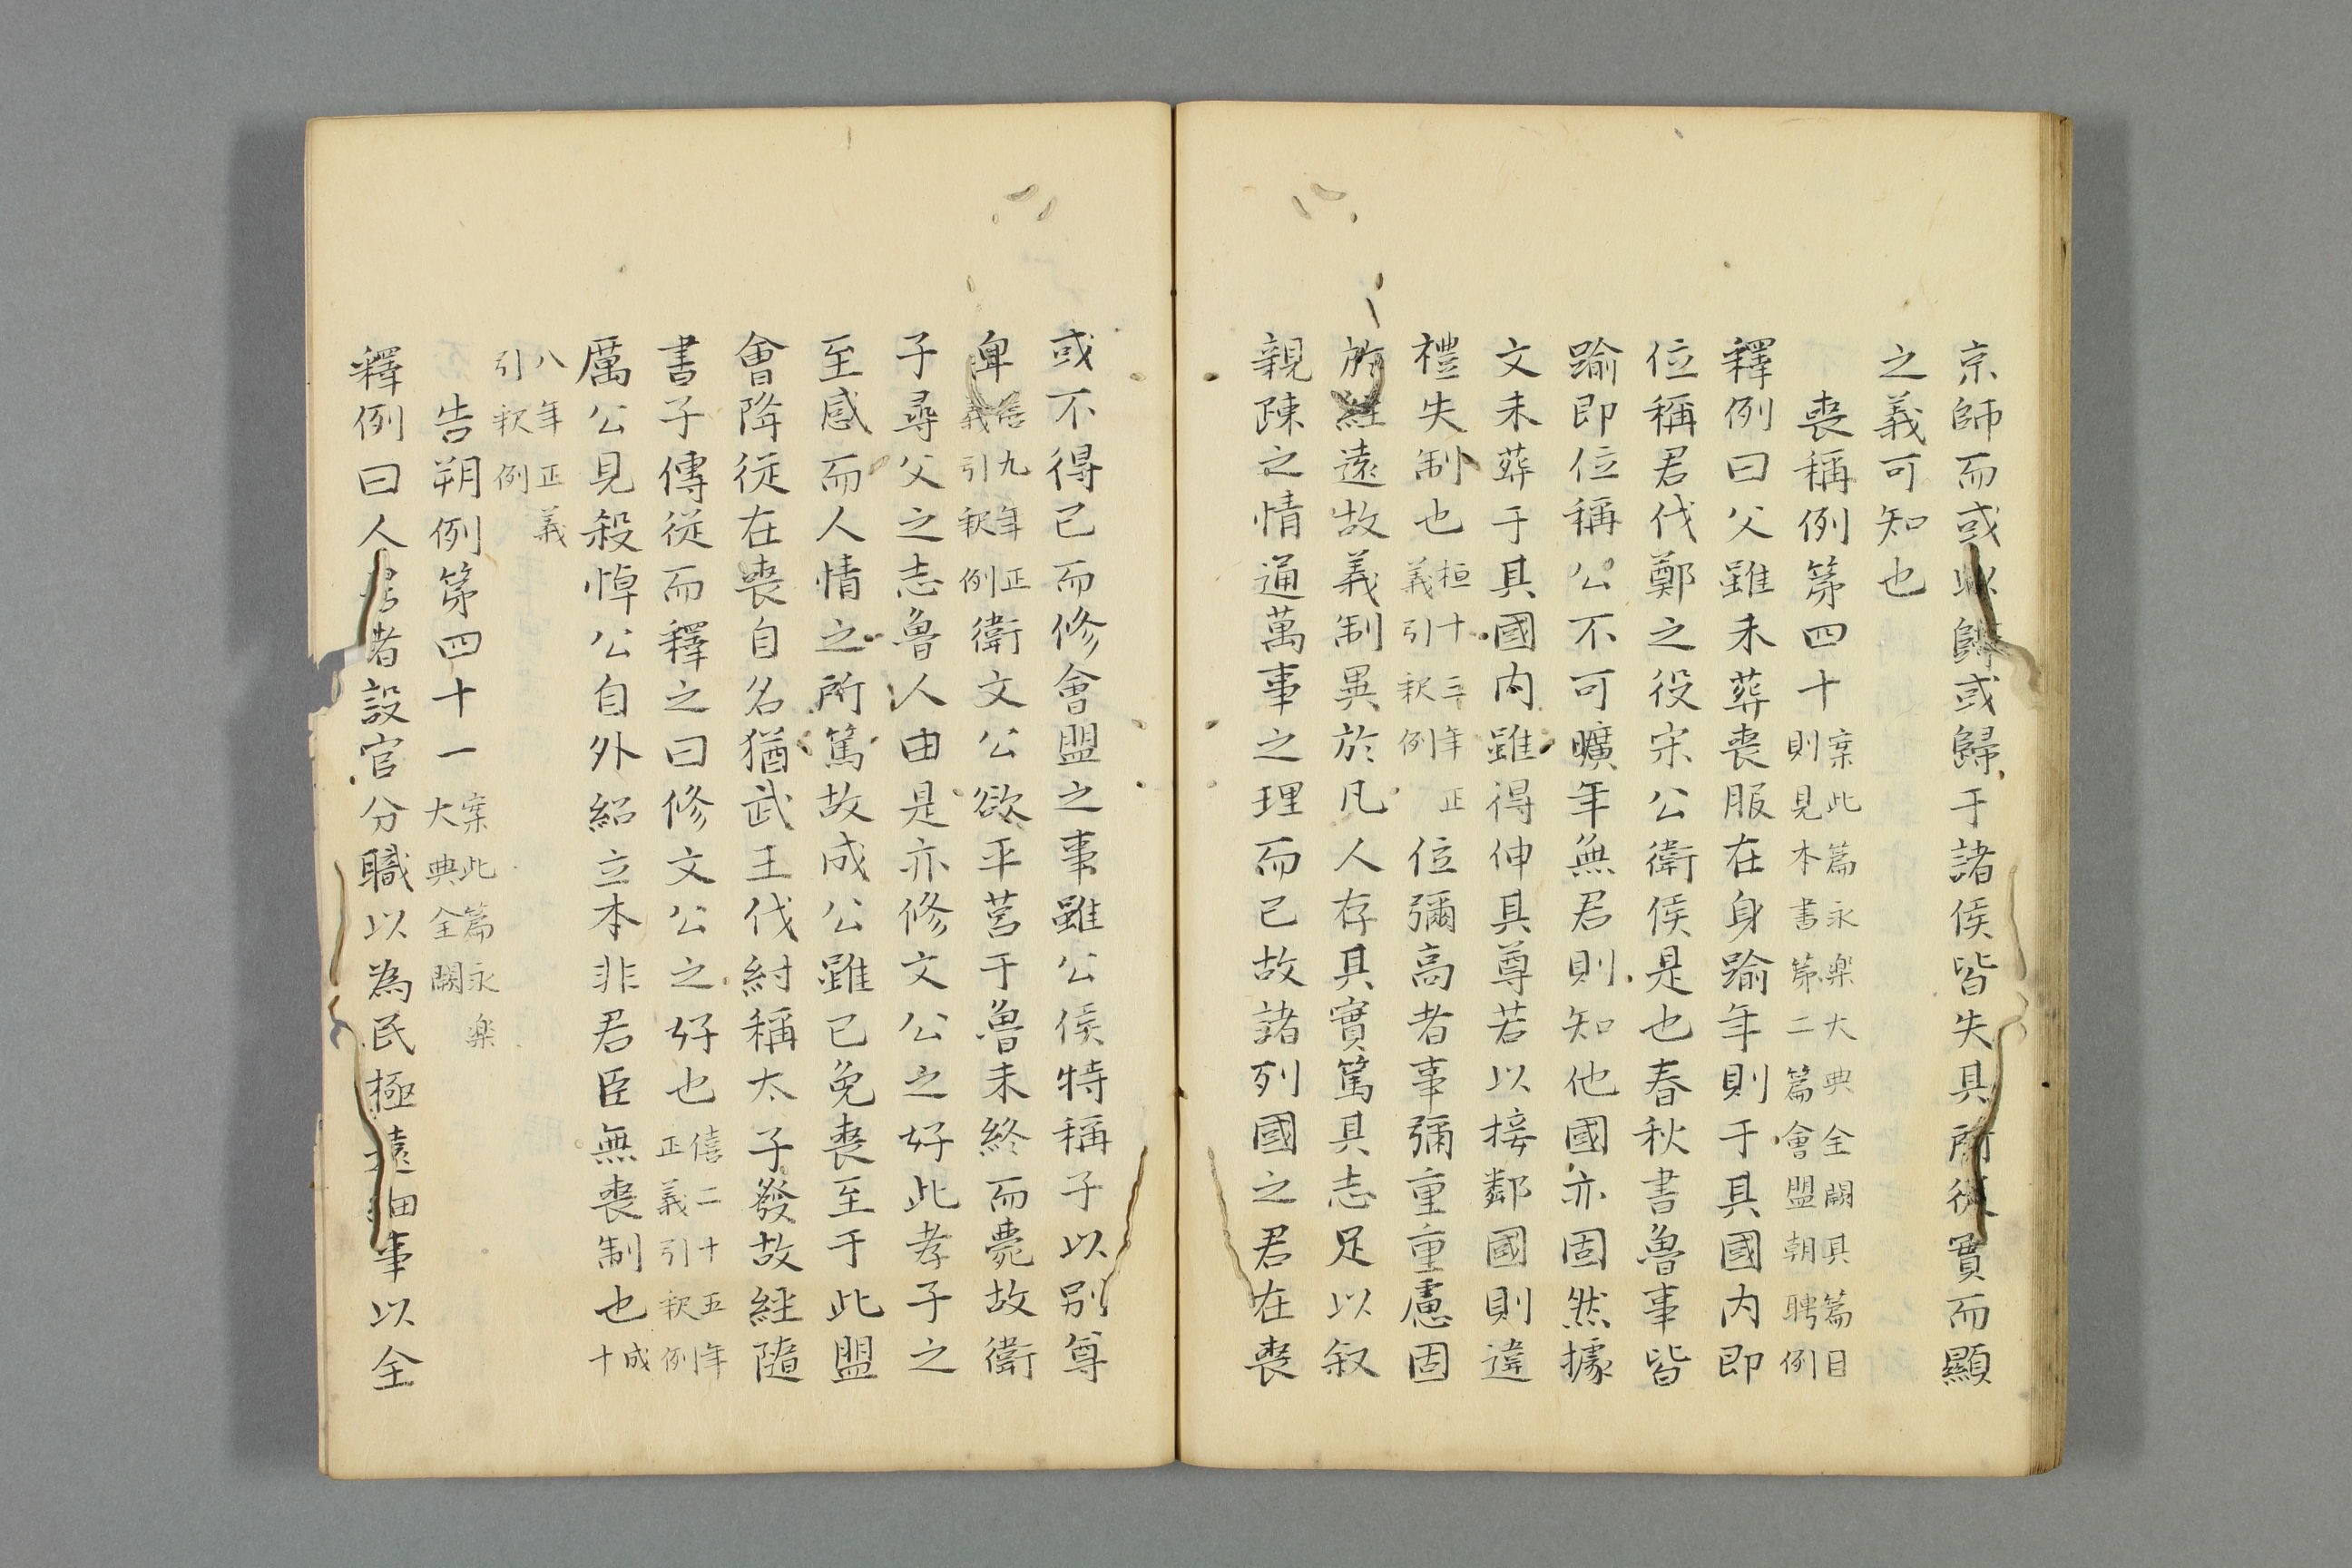 京師而或歸或歸于諸侯皆失其所從實而顯
之義可知也
喪稱例第四十
案此篇永樂大典全闕其篇目
則見本書第二篇會盟朝聘例
釋例曰父雖未葬喪服在身踰年則于其國內即
位稱君伐鄭之役宋公衛侯是也春秋書魯事皆
踰即位稱公不可曠年無君則知他國亦固然據
文未葬于其國內雖得伸其尊若以接鄰國則違
禮失制也
桓十三年正
義引釈例
位彌高者事彌重重慮固
所經遠故義制異於凡人存其實篤其志足以叙
親陳之情通萬事之理而已故諸列國之君在喪
或不得已而修會盟之事雖公侯特稱子以別尊
卑
僖九年正
義引釈例
衛文公欲平莒于魯未終而薨故衛
子尋父之志魯人由是亦修文公之好此孝子之
至感而人情之所篤故成公雖已免喪至于此盟
會降從在喪自名猶武王伐紂稱太子發故經隨
書子傳從而釋之曰修文公之好也
僖二十五年
正義引釈例
厲公見殺悼公自外紹立本非君臣無喪制也
成
十
八年正義
引釈例
告朔例第四十一
案此篇永楽
大典全闕
釋例曰人君者設官分職以為民極遠細事以全